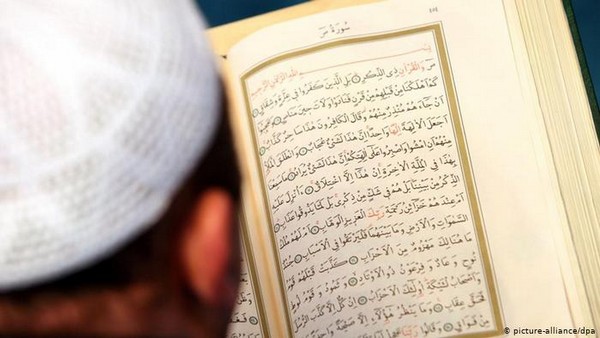 سُورَةُ صۤ
بِسْمِ اللّٰهِ الرَّحْمٰنِ الرَّحِيمِ
صۤ وَالْقُرْاٰنِ ذِي الذِّكْرِ بَلِ الَّذِينَ كَفَرُوا فِي عِزَّةٍ وَشِقَاقٍ
كَمْ اَهْلَكْنَا مِنْ قَبْلِهِمْ مِنْ قَرْنٍ فَنَادَوْا وَلَاتَ حِينَ مَنَاصٍ وَعَجِبُوا
اَنْ جَاءَهُمْ مُنْذِرٌ مِنْهُمْ وَقَالَ الْكَافِرُونَ هٰذَا سَاحِرٌ كَذَّابٌ
اَجَعَلَ الْاٰلِهَةَ اِلٰهًا وَاحِدًا اِنَّ هٰذَا لَشَيْءٌ عُجَابٌ وَانْطَلَقَ الْمَلَأُ
مِنْهُمْ اَنِ امْشُوا وَاصْبِرُوا عَلٰى اٰلِهَتِكُمْ اِنَّ هٰذَا لَشَيْءٌ يُرَادُ مَا سَمِعْنَا
بِهٰذَا فِي الْمِلَّةِ الْاٰخِرَةِ اِنْ هٰذَا اِلَّا اخْتِلَاقٌ ءَاُنْزِلَ عَلَيْهِ
الذِّكْرُ مِنْ بَيْنِنَا بَلْ هُمْ فِي شَكٍّ مِنْ ذِكْرِي بَلْ لَمَّا يَذُوقُوا عَذَابِ
اَمْ عِنْدَهُمْ خَزَائِنُ رَحْمَةِ رَبِّكَ الْعَزِيزِ الْوَهَّابِ اَمْ لَهُمْ مُلْكُ
السَّمٰوَاتِ وَالْاَرْضِ وَمَا بَيْنَهُمَا فَلْيَرْتَقُوا فِي الْاَسْبَابِ جُنْدٌ
مَا هُنَالِكَ مَهْزُومٌ مِنَ الْاَحْزَابِ كَذَّبَتْ قَبْلَهُمْ قَوْمُ
نُوحٍ وَعَادٌ وَفِرْعَوْنُ ذُو الْاَوْتَادِ وَثَمُودُ وَقَوْمُ لُوطٍ
وَاَصْحَابُ لْـَٔيْكَةِ اُولٰئِكَ الْاَحْزَابُ اِنْ كُلٌّ اِلَّا كَذَّبَ الرُّسُلَ
فَحَقَّ عِقَابِ وَمَا يَنْظُرُ هٰؤُلَاءِ اِلَّا صَيْحَةً وَاحِدَةً مَا لَهَا
مِنْ فَوَاقٍ وَقَالُوا رَبَّنَا
© picture-alliance/dpa